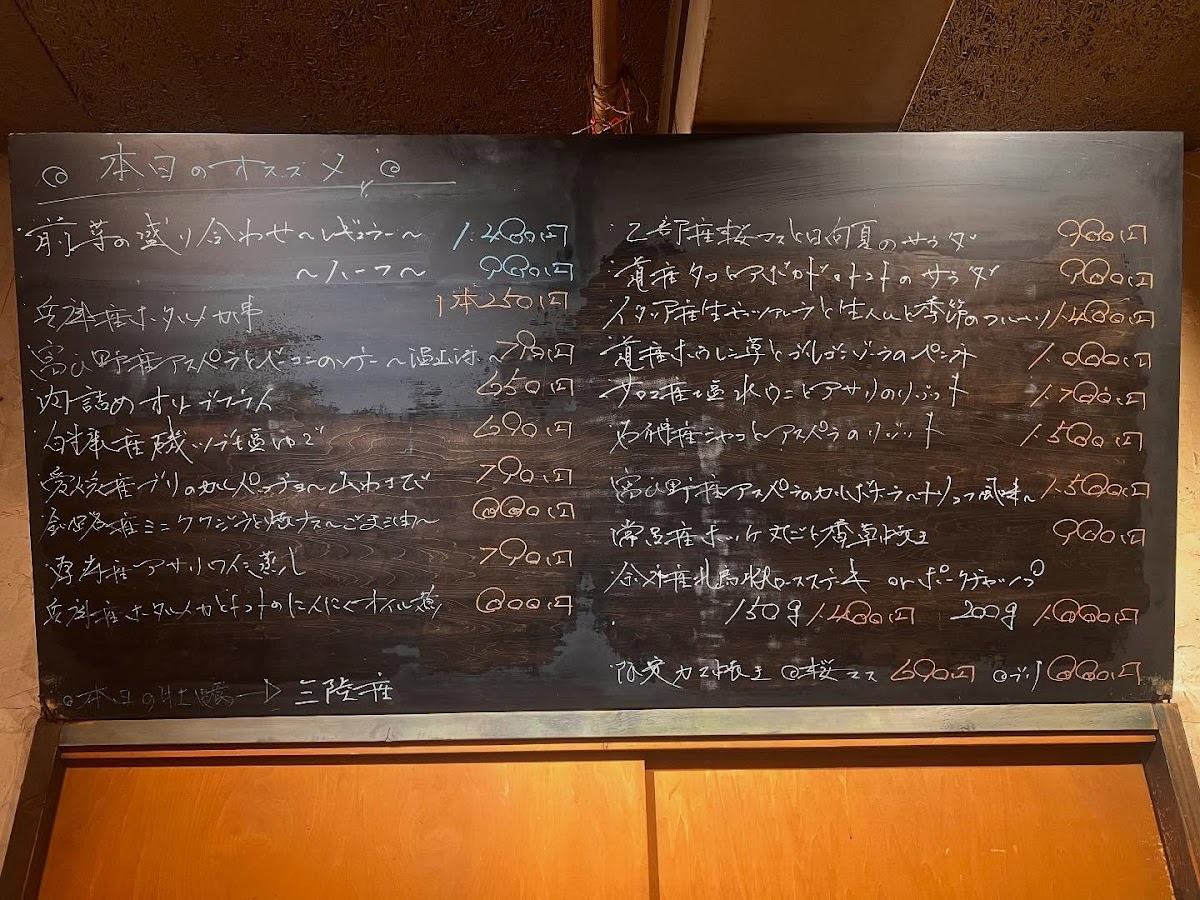 本日のオススメ
前菜の盛り合わせ〜レギュラー〜 1.480円
〜ハーフ〜 980円
兵庫産ホタルイカ串 1本250円
富良野産アスパラとベーコンのソテー〜温玉 790円
肉詰めオリーブフライ 650円
産磯ツブ塩ゆで 690円
愛媛産ブリのカルパッチョ〜山わさび 790円
産ミニ と焼ナス〜ごま油〜
産アサリワイン蒸し 790円
兵庫産ホタルイカとトマトのにんにくオイル煮
本日の牡蠣→三陸産
乙部産桜マスと日向夏のサラダ 980円
道産タコとアボカド トマトのサラダ 980円
イタリア産生モッツァレラと生ハムと季節のフルーツ 1.480円
道産ホウレン草とゴルゴンゾーラのペンネ
サロマ産塩水ウニとアサリのリゾット
石狩産シャコとアスパラのリゾット 1.580円
富良野産アスパラのカルボナーラ〜トリュフ風味〜 1.580円
常呂産ホッケ丸ごと香草焼き 980円
余市産北島豚ロースステーキ orポークチャップ
150g 1.480円 200g
限定カマ焼き 桜マス 690円 ブリ